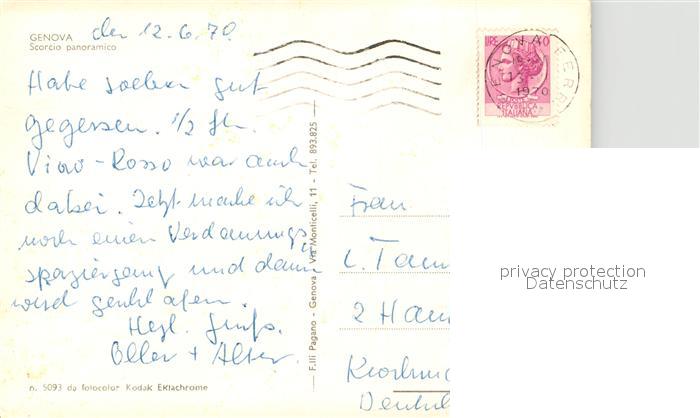 GENOVA
Scorcio panoramico
den 12.6.70.
Habe soeben gut
gegessen. 1/2 fl.
Vino-Rosso war auch
dabei. Jetzt mache ich
noch einen Verdauungs
spaziergang und dann
wird geschlafen.
Herzl. Grüße
n. 5093 da fotocolor Kodak Ektachrome
F.lli Pagano - Genova - Via Monticelli, 11 - Tel. 893.825
LIRE 40
POSTE
REPUBBLICA
ITALIANA
1970
Frau
2 Ham
privacy protection
Datenschutz